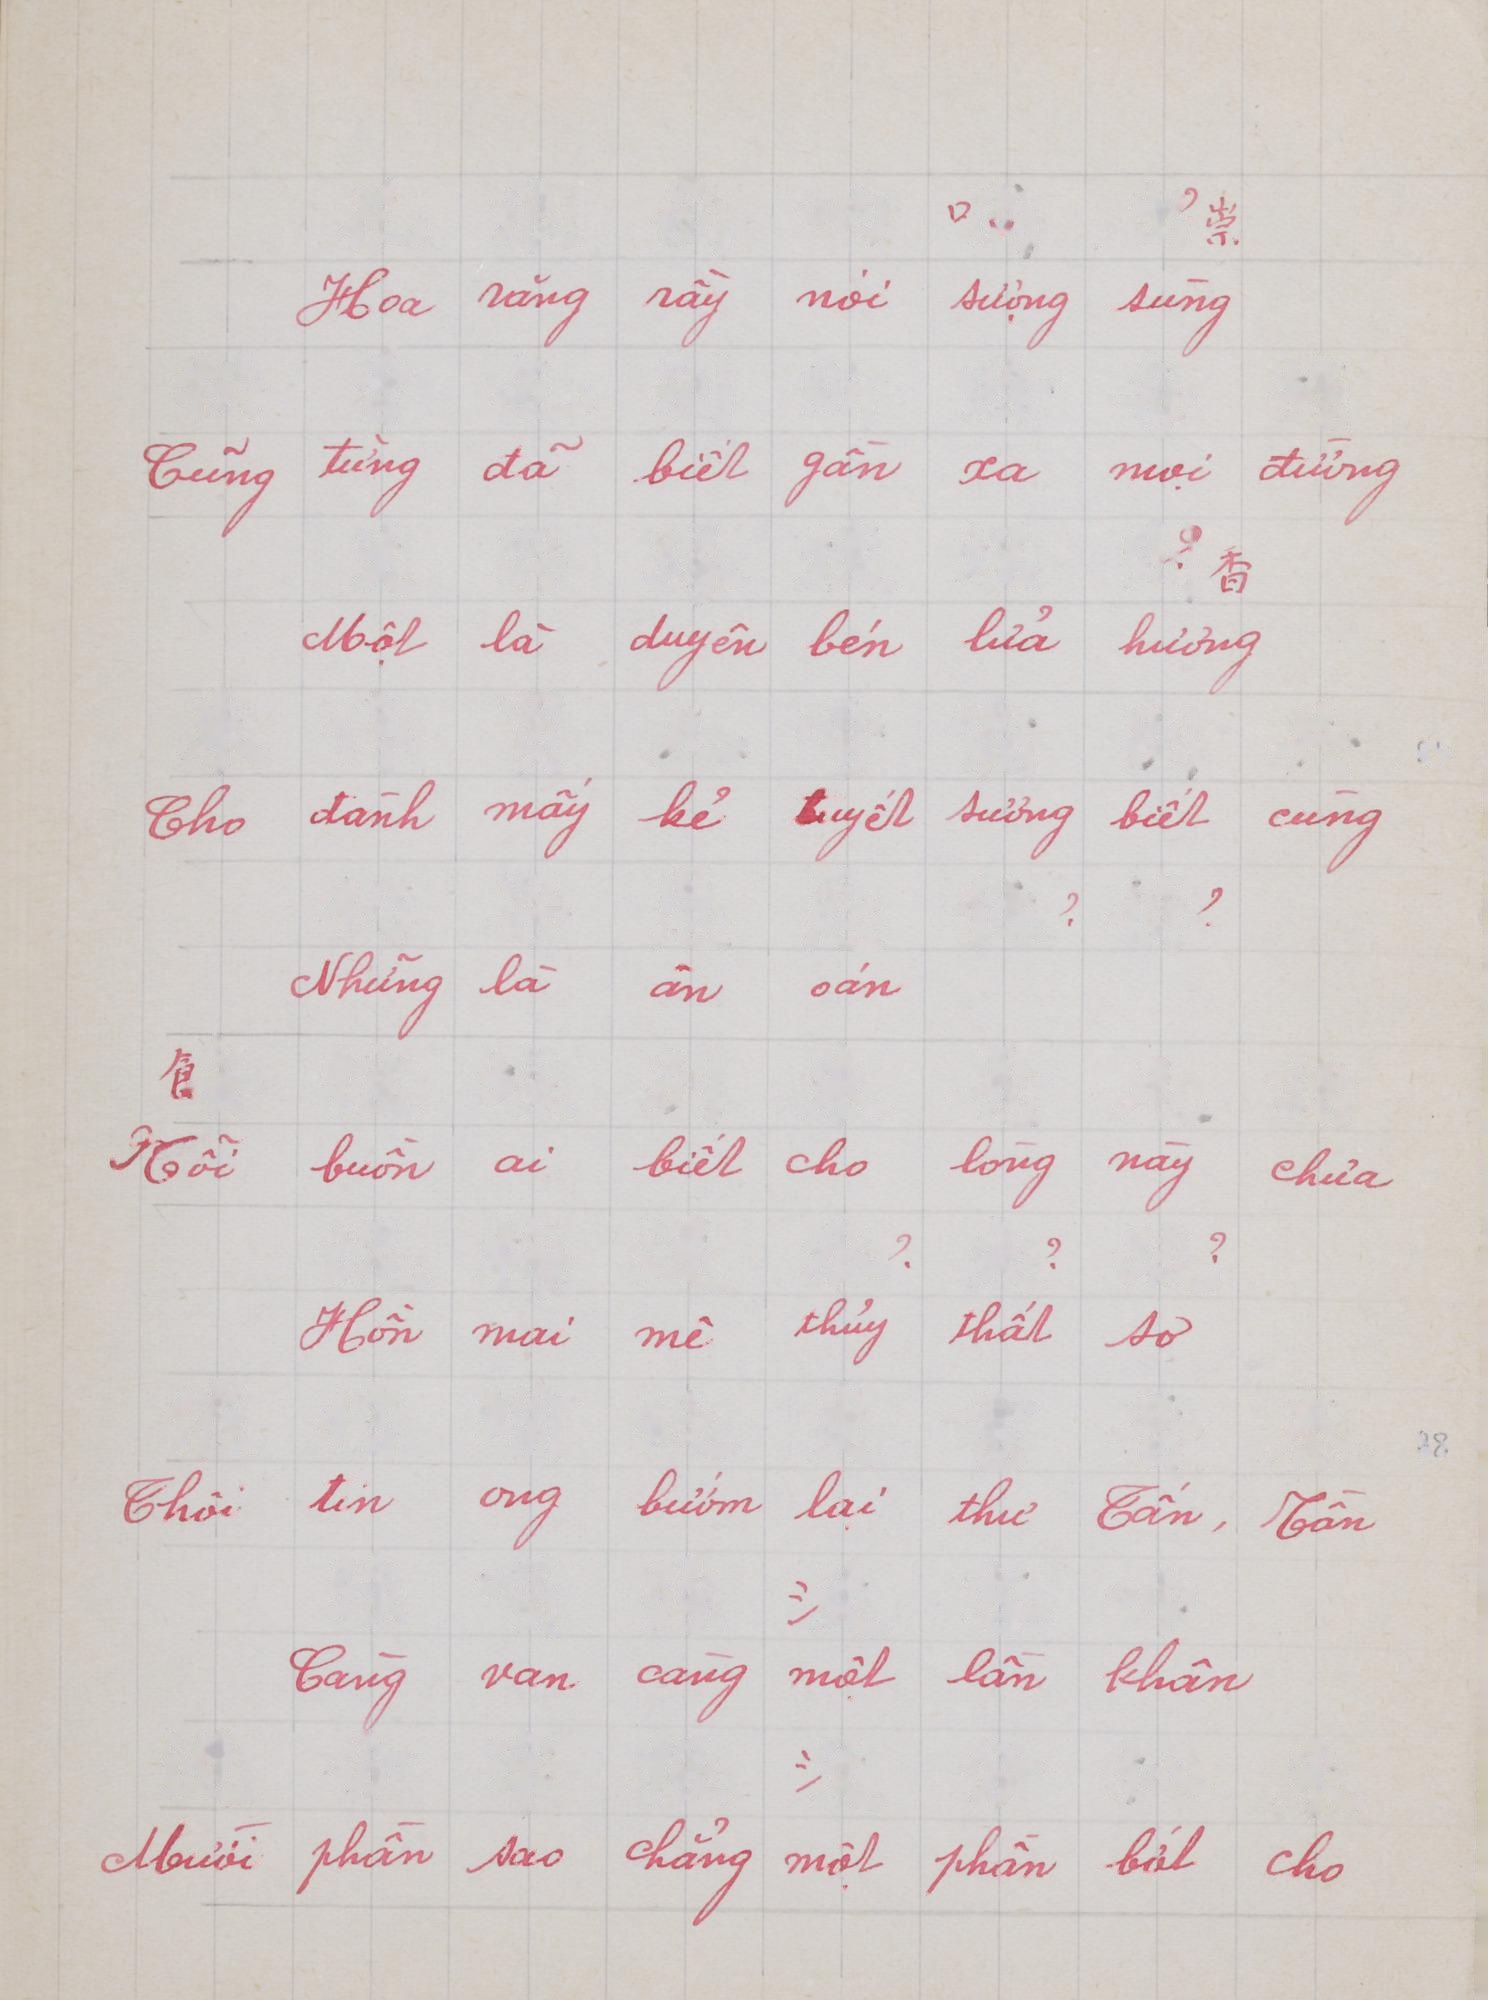 口 ? 崇
Hoa rằng rầy nói sượng sùng
Cũng từng đã biết gần xa mọi đường
? 香
Một là duyên bén lửa hương
Cho đành mấy kẻ tuyết sương biết cùng
? ?
Những là ân oán
食
Nỗi buồn ai biết cho lòng này chưa
? ? ?
Hồn mai mê thủy thất sơ
Thôi tin ong bướm lại thư Tấn, Tần
Càng van càng một lần khân
Mười phần sao chẳng một phần bớt cho